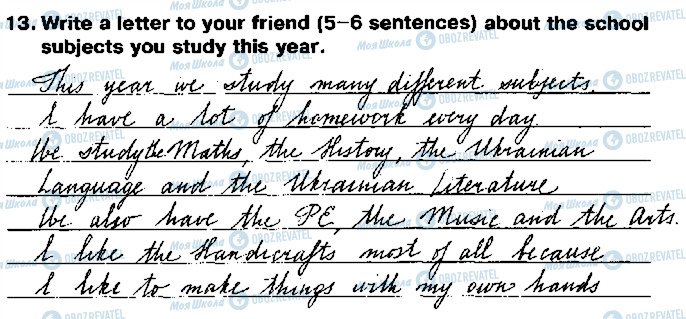 13. Write a letter to your friend (5–6 sentences) about the school
subjects you study this year.
This year we study many different subjects.
I have a lot of homework every day.
We study the Maths, the History, the Ukrainian
Language and the Ukrainian Literature
We also have the PE, the Music and the Arts.
I like the Handicrafts most of all because
I like to make things with my own hands